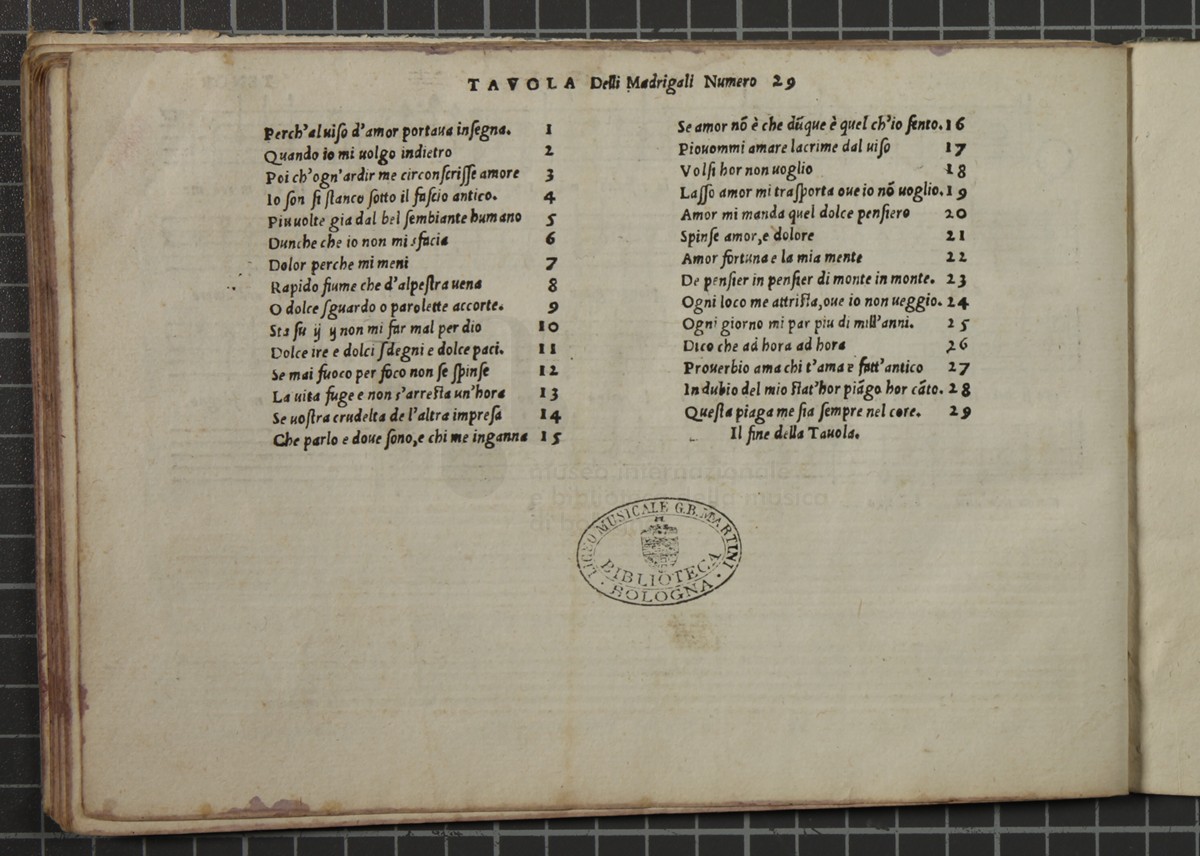 TAVOLA Delli Madrigali Numero 29
Perch'al uiſo d'amor portaua inſegna. 1
Quando io mi uolgo indietro 2
Poi ch'ogn'ardir me circonſcriſſe amore 3
Io ſon ſi ſtanco ſotto il faſcio antico. 4
Piu uolte gia dal bel ſembiante humano 5
Dunche che io non mi sfacia 6
Dolor perche mi meni 7
Rapido fiume che d'alpeſtra uena 8
O dolce ſguardo o parolette accorte. 9
Sta ſu ij ij non mi far mal per dio 10
Dolce ire e dolci ſdegni e dolce paci. 11
Se mai fuoco per foco non ſe ſpinſe 12
La uita fuge e non s'arreſta un'hora 13
Se uoſtra crudelta de l'altra impreſa 14
Che parlo e doue ſono,e chi me inganna 15
Se amor nõ è che dũque è quel ch'io ſento. 16
Piouommi amare lacrime dal uiſo 17
Volſi hor non uoglio 18
Laſſo amor mi traſporta oue io nõ uoglio. 19
Amor mi manda quel dolce penſiero 20
Spinſe amor,e dolore 21
Amor fortuna e la mia mente 22
De penſier in penſier di monte in monte. 23
Ogni loco me attriſta,oue io non ueggio. 24
Ogni giorno mi par piu di mill'anni. 25
Dico che ad hora ad hora 26
Prouerbio ama chi t'ama e fatt'antico 27
In dubio del mio ſtat'hor piãgo hor cãto. 28
Queſta piaga me ſia ſempre nel core. 29
Il fine della Tauola.
museo internazionale
e biblioteca della musica
di bologna
LICEO MUSICALE G.B. MARTINI
BIBLIOTECA
BOLOGNA